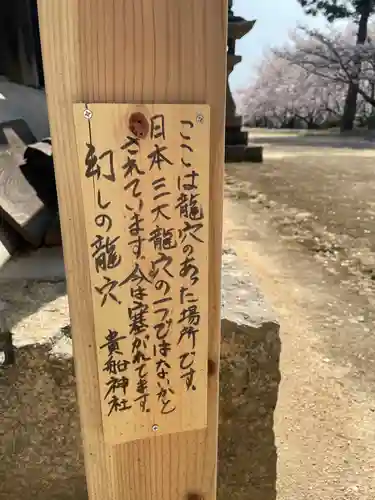 ここは龍穴のあった場所です。
日本三大龍穴の一つではないかと
いわれています。今は塞がれてます。
幻しの龍穴
貴船神社